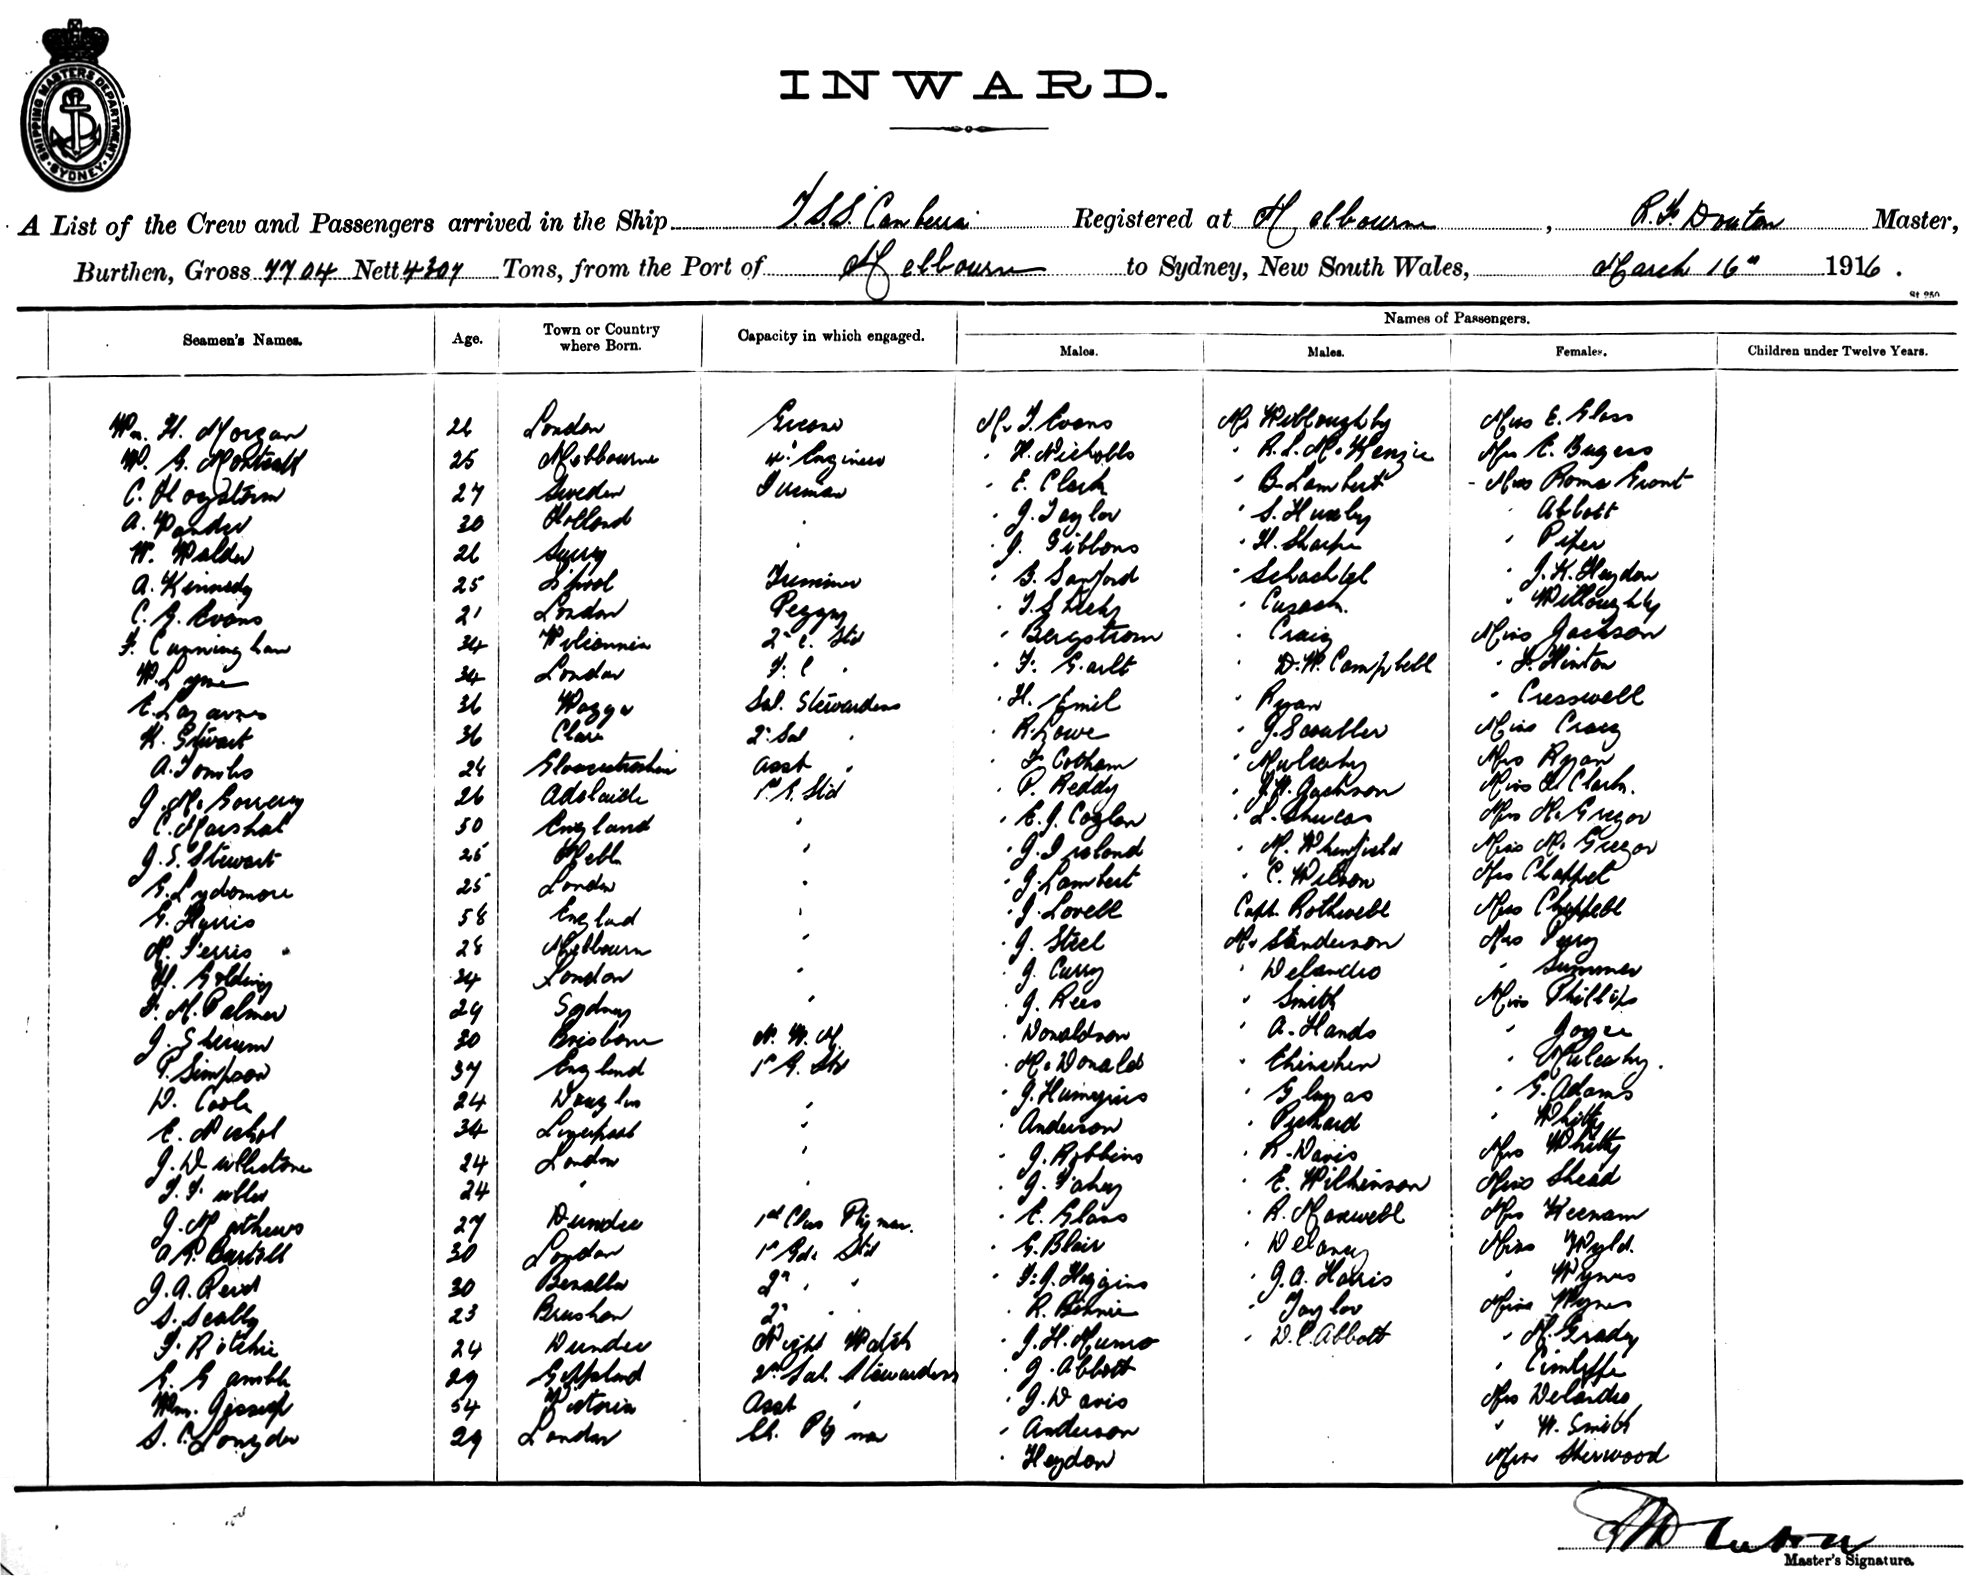 SHIPPING MASTERS DEPARTMENT · SYDNEY ·
INWARD.
A List of the Crew and Passengers arrived in the Ship T.S.S. Canberra Registered at Melbourne, R. F. Master,
Burthen, Gross 7704 Nett 4307 Tons, from the Port of Melbourne to Sydney, New South Wales, March 16" 1916.
Seamen's Names. Age. Town or Country where Born. Capacity in which engaged. Names of Passengers.
Males. Males. Females. Children under Twelve Years.
Wm. H. Morgan 26 London Greaser Mr T. Evans Mr Willoughby Miss E. Glass
W. G. 25 Melbourne Engineer " H. Nicholls " R. L. McKenzie Mrs E.
C. 27 Sweden Fireman " E. Clark " B. Lambert " Miss Roma Grant
A. 30 Holland " " J. Taylor " S. Huxley " Abbott
W. Walder 26 Surry " " J. Gibbons " H. Sharpe " Piper
A. Kennedy 25 L'pool Trimmer " B. Sanford " " J. K. Heydon
C. G. Evans 21 London Peggy " T. Sheehy " Cusack " Willoughby
F. Cunningham 34 2nd C. Std " Bergstrom " Craig Miss Jackson
W. Lyne 34 London F. C " " F. " D. W. Campbell " F. Hinton
E. Lazarus 36 Wagga Sal. Stewardess " H. Emil " Ryan " Cresswell
K. Stewart 36 Clare 2nd Sal " " R. Lowe " J. Scoullar Miss Craig
A. Tombs 26 Gloucestershire Asst " " F. Cotham " Mulcahy Mrs Ryan
J. McGorrery 26 Adelaide 1st G. Std " P. Reddy " J. H. Jackson Miss Clark.
C. Marshal 50 England " " E. J. Coglan " L. Mrs McGregor
J. S. Stewart 25 Melb " " J. Ireland " M. Whenfield Miss McGregor
G. Lydamore 25 London " " J. Lambert " C. Wilson Mrs Chappel
G. Harris 58 England " " J. Lovell Capt. Rothwell Miss Chappell
M. Ferris 28 Melbourn " " J. Steel Mr Sanderson Mrs Perry
H. Golding 34 London " " J. Curry " Delandro " Summer
F. M. Palmer 29 Sydney " " J. Rees " Smith Miss Phillips
J. 30 Brisbane N. W. M. " Donaldson " A. Hands " Joyce
P. Simpson 37 England 1st G. Std " McDonald " " Mulcahy.
D. Cook 24 Douglas " " J. Hummins " " G. Adams
E. Nichol 34 Liverpool " " Anderson " Pickard " Whitty
J. 24 London " " J. Robbins " R. Davis Mrs Whitty
T. 24 " " " J. Fahey " E. Wilkinson Miss Shead
J. Mathews 27 Dundee 1st Class " E. Glass " R. Maxwell Mrs Keenam
A. R. 30 London 1st Gde Std " G. Blair " Delany Miss Wyld.
J. A. Reid 30 Benalla 2nd " " " F. J. Higgins " J. A. Harris " Wynes
S. Scally 23 2nd " " " R. Binnie " Taylor Miss Wynes
F. Ritchie 24 Dundee Night Watch " J. H. Munro " D. C. Abbott " M. Grady
G. Gamble 29 Gippsland 2nd Sal. Stewardess " J. Abbott "
Wm. Jessup 54 Victoria Asst " " J. Davis Mrs Delandro
S. C. 29 London Ch. " Anderson " W. Smith
" Heydon Miss Sherwood
Master's Signature.